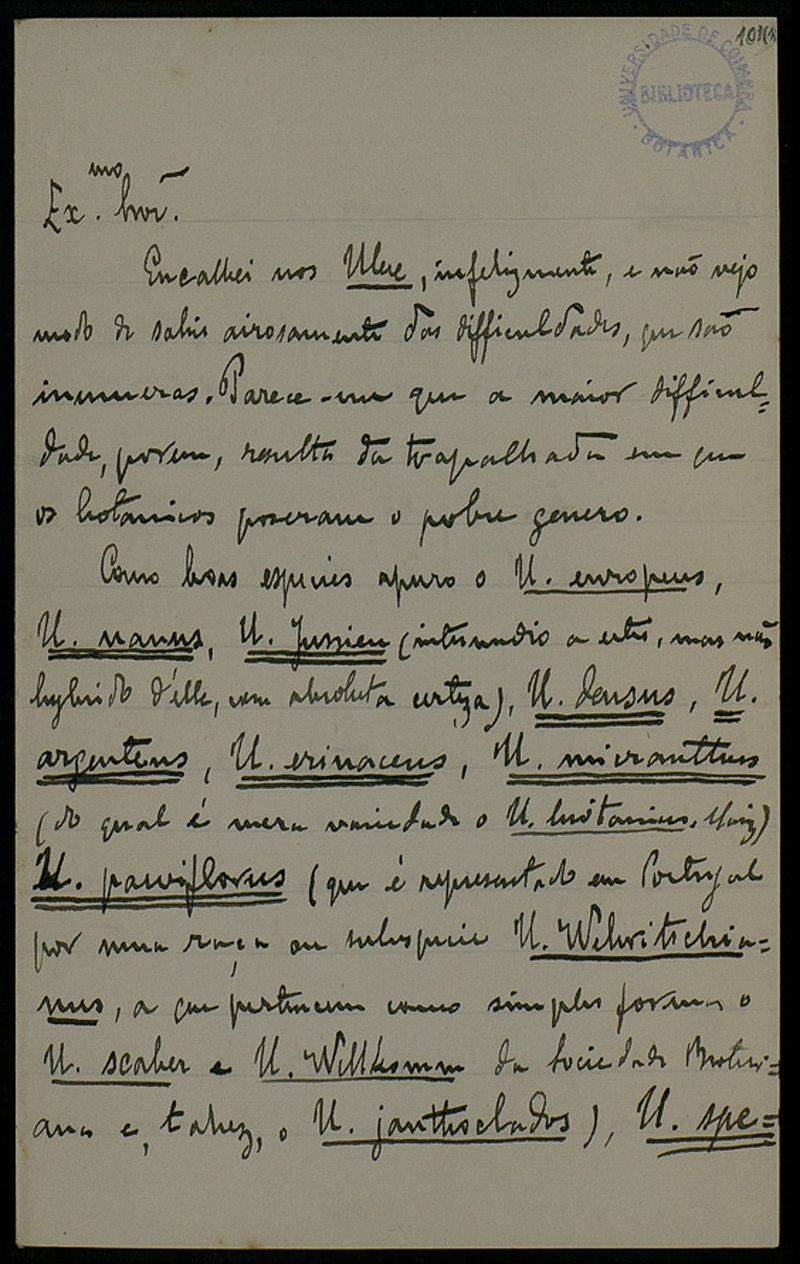 UNIVERSIDADE DE COIMBRA
BIBLIOTECA
BOTANICA
Ex.mo Snr.
Encalhei nos Ulex, infelizmente, e não vejo
modo de sahir airosamente das difficuldades, que são
innumeras. Parece-me que a maior difficul=
dade, porem, resulta da trapalhada em que
os botanicos poseram o pobre genero.
Como boas especies apuro o U. europeus,
U. nanus, U. Jussieu (intermedio a estes, mas não
hybrido d'elle, com absoluta certeza), U. densus, U.
argenteus, U. erinaceus, U. micranthus
(do qual é mera variedade o U. lusitanicus, Mariz)
U. parviflorus (que é representado em Portugal
por uma raça ou subspecie U. Welwitschia=
nus, a que pertencem como simples formas o
U. scaber e U. Willkomm da Sociedade Broteri=
ana e, talvez, o U. janthoclados), U. spe=